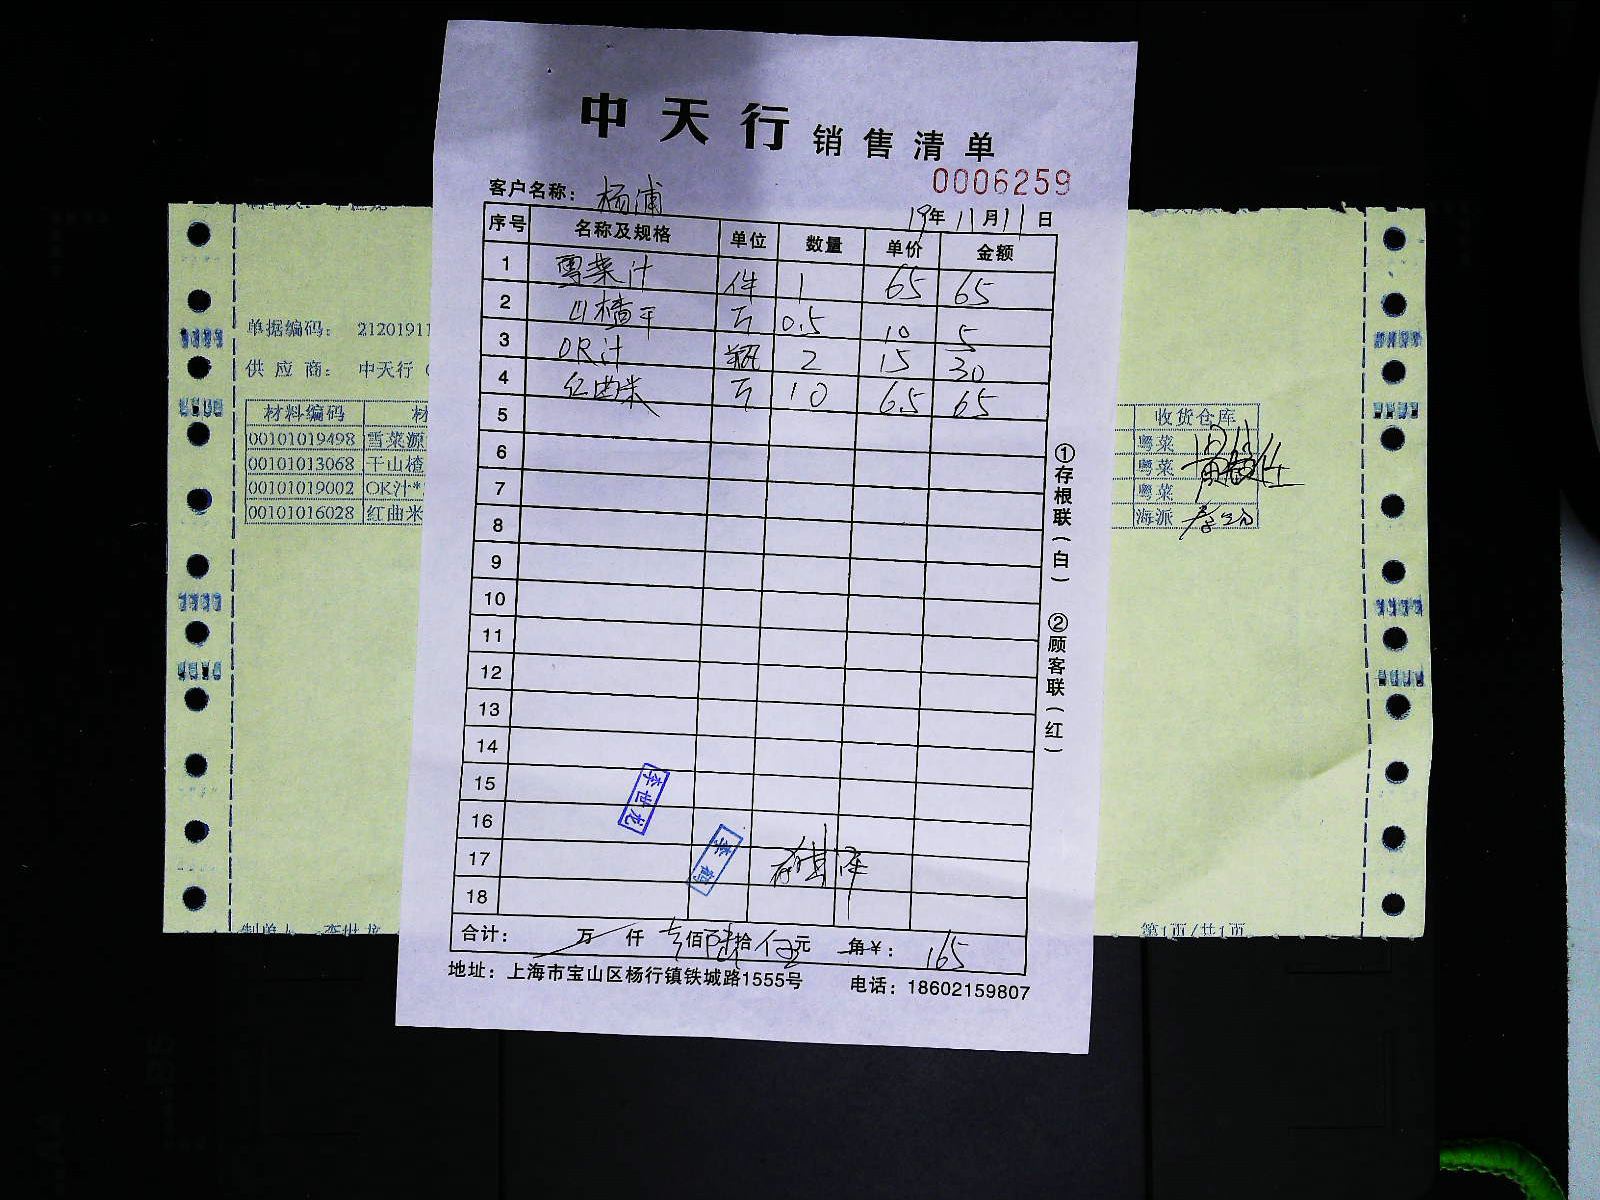 中天行 销售清单
0006259
客户名称： 杨浦
19年 11月 11日
序号 名称及规格 单位 数量 单价 金额
1 雪菜汁 件 1 65 65
2 山楂干 斤 0.5 10 5
3 OR汁 瓶 2 15 30
4 红曲米 斤 10 6.5 65
5
6
7
8
9
10
11
12
13
14
15
16
17
18
李世龙
合计： 万 仟 壹佰陆拾伍元 角¥： 165
地址：上海市宝山区杨行镇铁城路1555号 电话：18602159807
①存根联（白） ②顾客联（红）
单据编码： 21201911
供应商： 中天行（
材料编码 材 收货仓库
00101019498 雪菜源 粤菜
00101013068 干山楂 粤菜
00101019002 OK汁* 粤菜
00101016028 红曲米 海派
制单人：李世龙 第1页/共1页